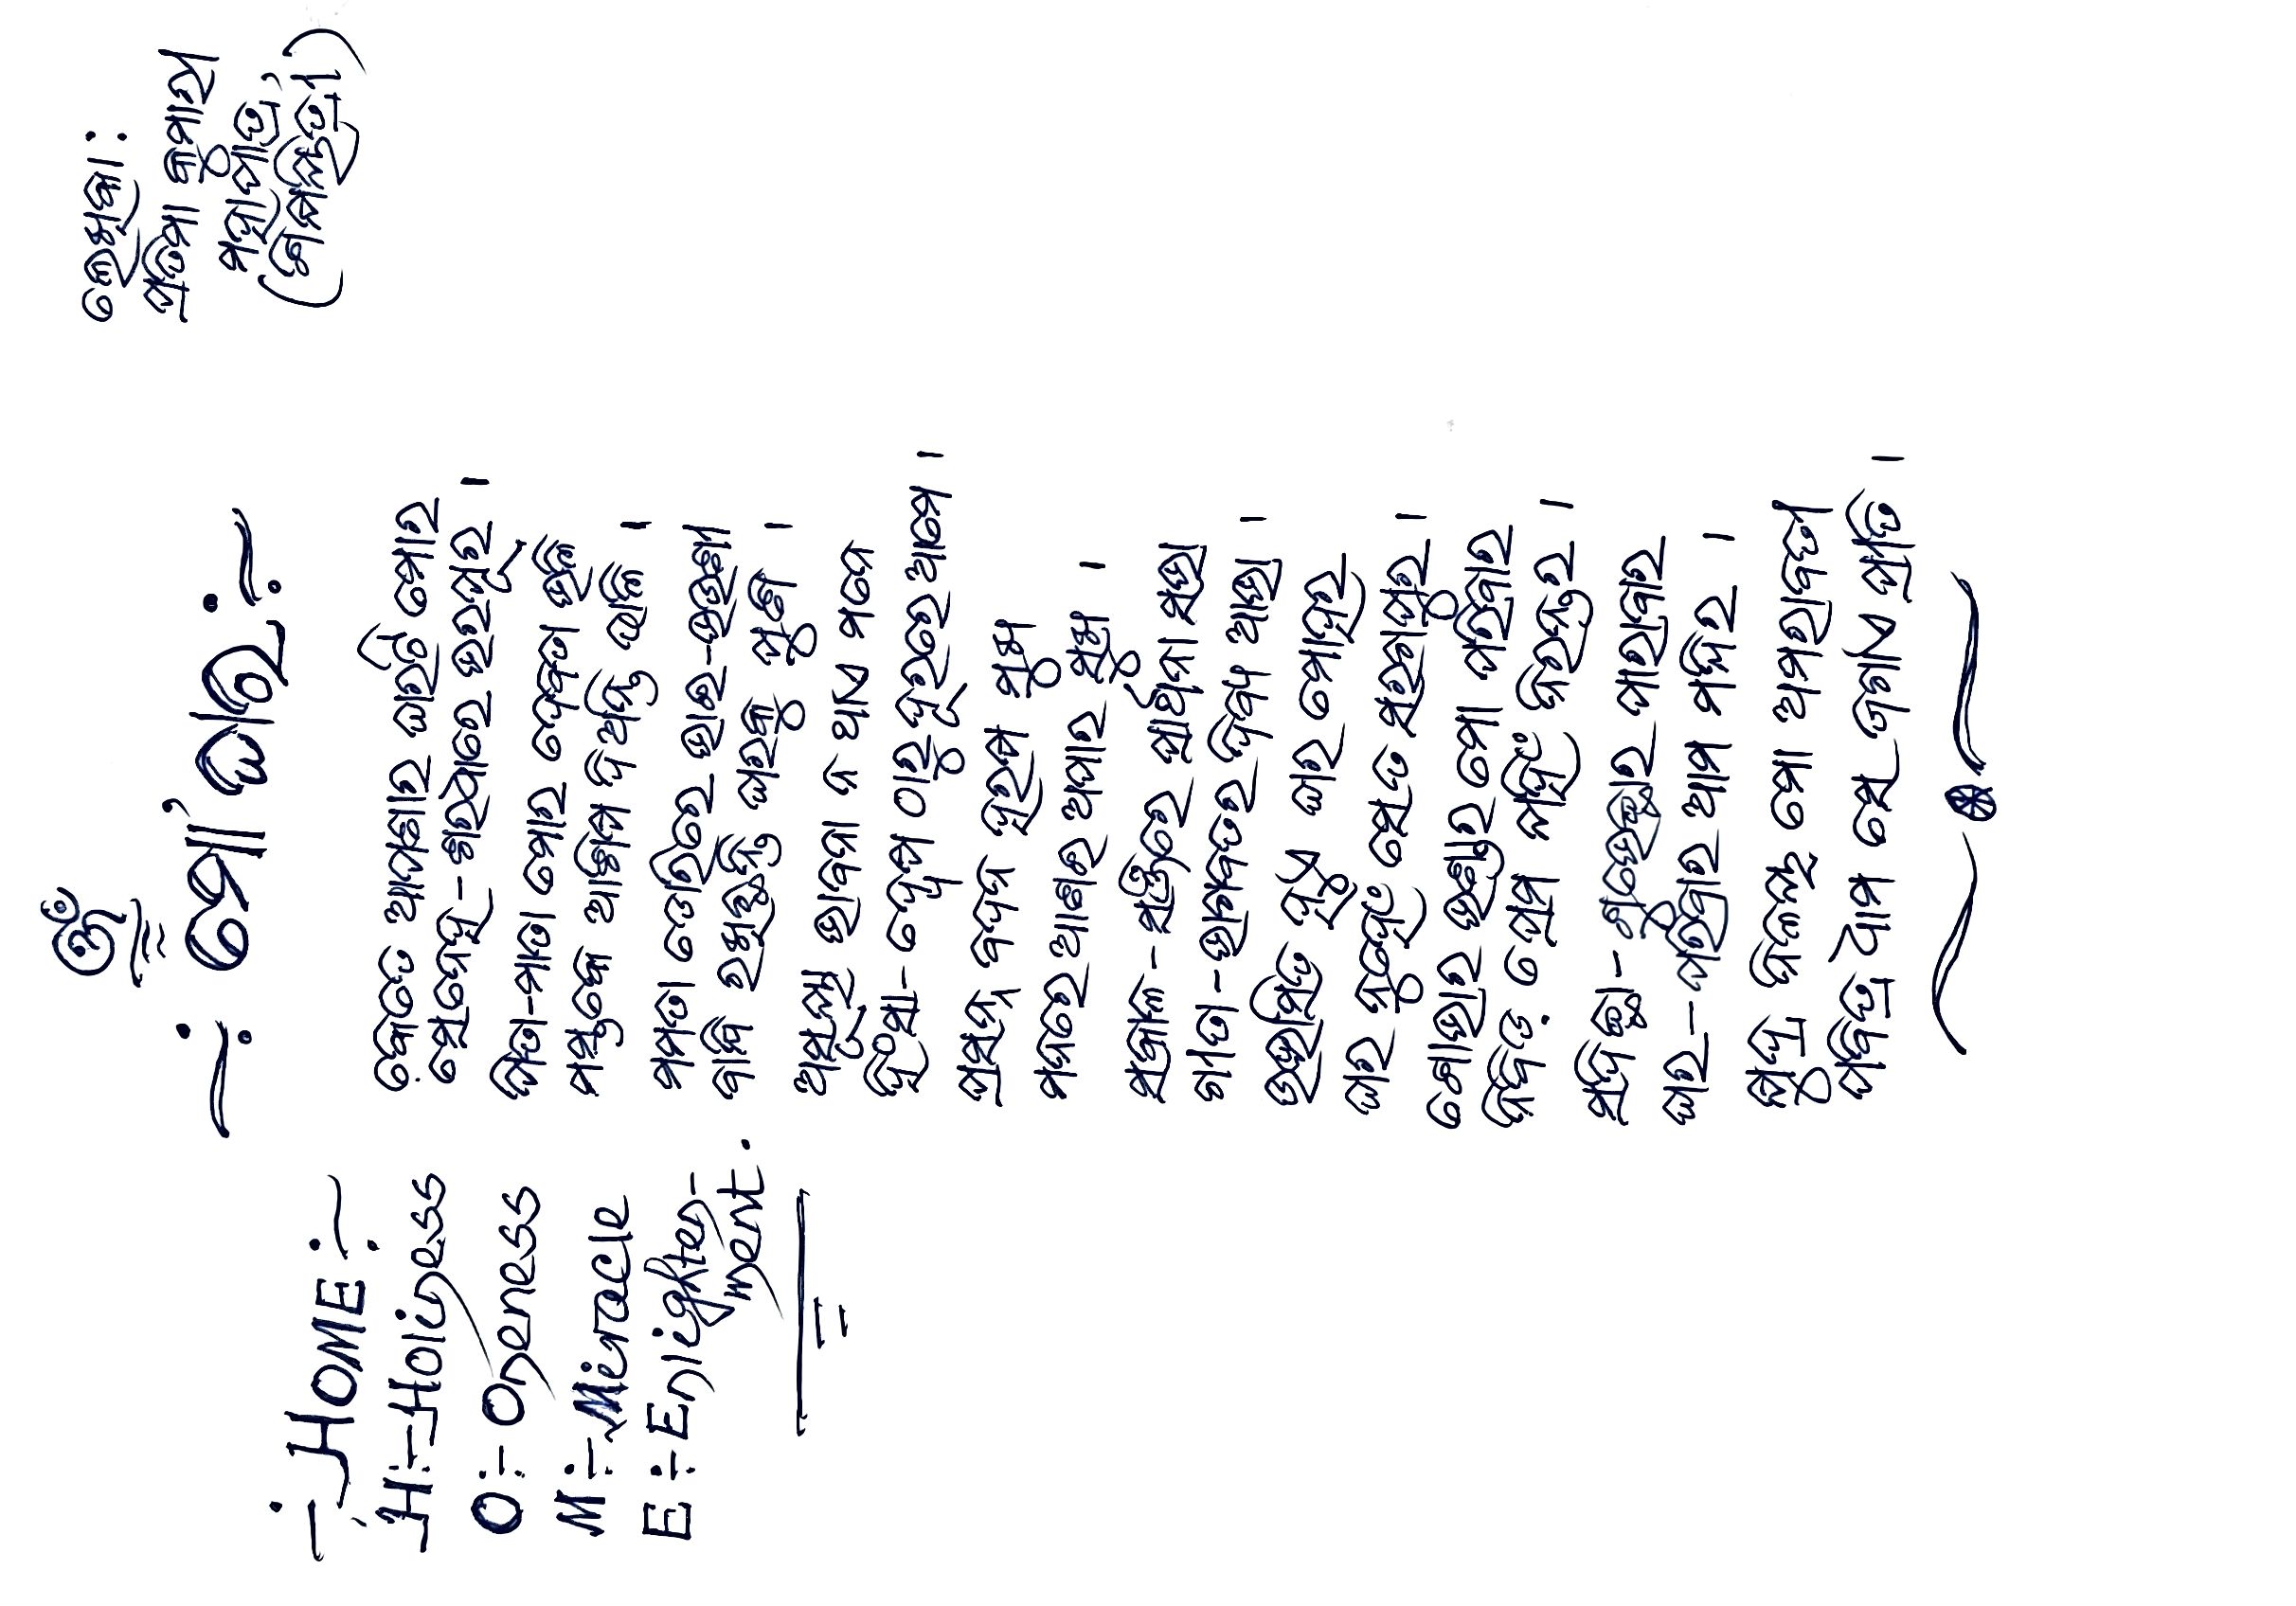 ଓଁ
-: ମୋ' ଘର :-
ଲେଖିକା :
ପ୍ରତିମା କୁମାରୀ
ମହାପାତ୍ର,
(ଶିକ୍ଷୟିତ୍ରୀ)
-: HOME :-
H :- Holiness
O :- Oneness
M :- Miracle
E :- Enlighten-
ment.
କେତେ ଆପଣାର ଘରଟି ମୋର
ସ୍ନେହ - ଶରଧାରେ ଭରପୂର ।
ପିତା-ମାତା ମୋର ଦେବତା ଭଳି
ମସ୍ତକେ ଆଶିଷ ଦିଅନ୍ତି ଢାଳି ।
ମମତା ଡୋରିରେ ଭାଇ-ଭଉଣୀ
ବାନ୍ଧି ରଖିଛନ୍ତି ଘରକୁ ପୁଣି ।
ଅସୂୟା ଭାବନା ନ ଥାଏ ମନେ
ହିଂସା - ଦ୍ୱେଷ ଠାରୁ ଦୂରରେ ଆମେ ।
ପ୍ରସନ୍ନ ବଦନ ହରଷ ମୁଖ
ମନରେ ଆଣଇ ଅପାର ସୁଖ ।
ସକାଳ - ସଞ୍ଜରେ ପ୍ରାର୍ଥନା ସଭା
ଗୀତା - ଭାଗବତର ଦିବ୍ୟ ଆଭା ।
ଉଦ୍ଭାସିତ ହୁଏ ଘର ମୋହର
ଘର ନୁହେଁ ସେ ତ ସରଗପୁର ।
ଶୋଭାର ଭଣ୍ଡାର ମୋ ପରିବାର
ନିବିଡ଼ ପ୍ରେମ ଯହିଁ ନିରନ୍ତର ।
ସଦିଚ୍ଛା - ଶୁଭେଚ୍ଛାର ପାରାବାର
ଘର - ପରିବାର ଆମ ମନ୍ଦିର ।
କ୍ଷୁଦ୍ର ନିଳୟ ମୋ ଅମରାବତୀ
ପବିତ୍ର ଧାମ ସେ ଜଗାଏ ପ୍ରୀତି ।